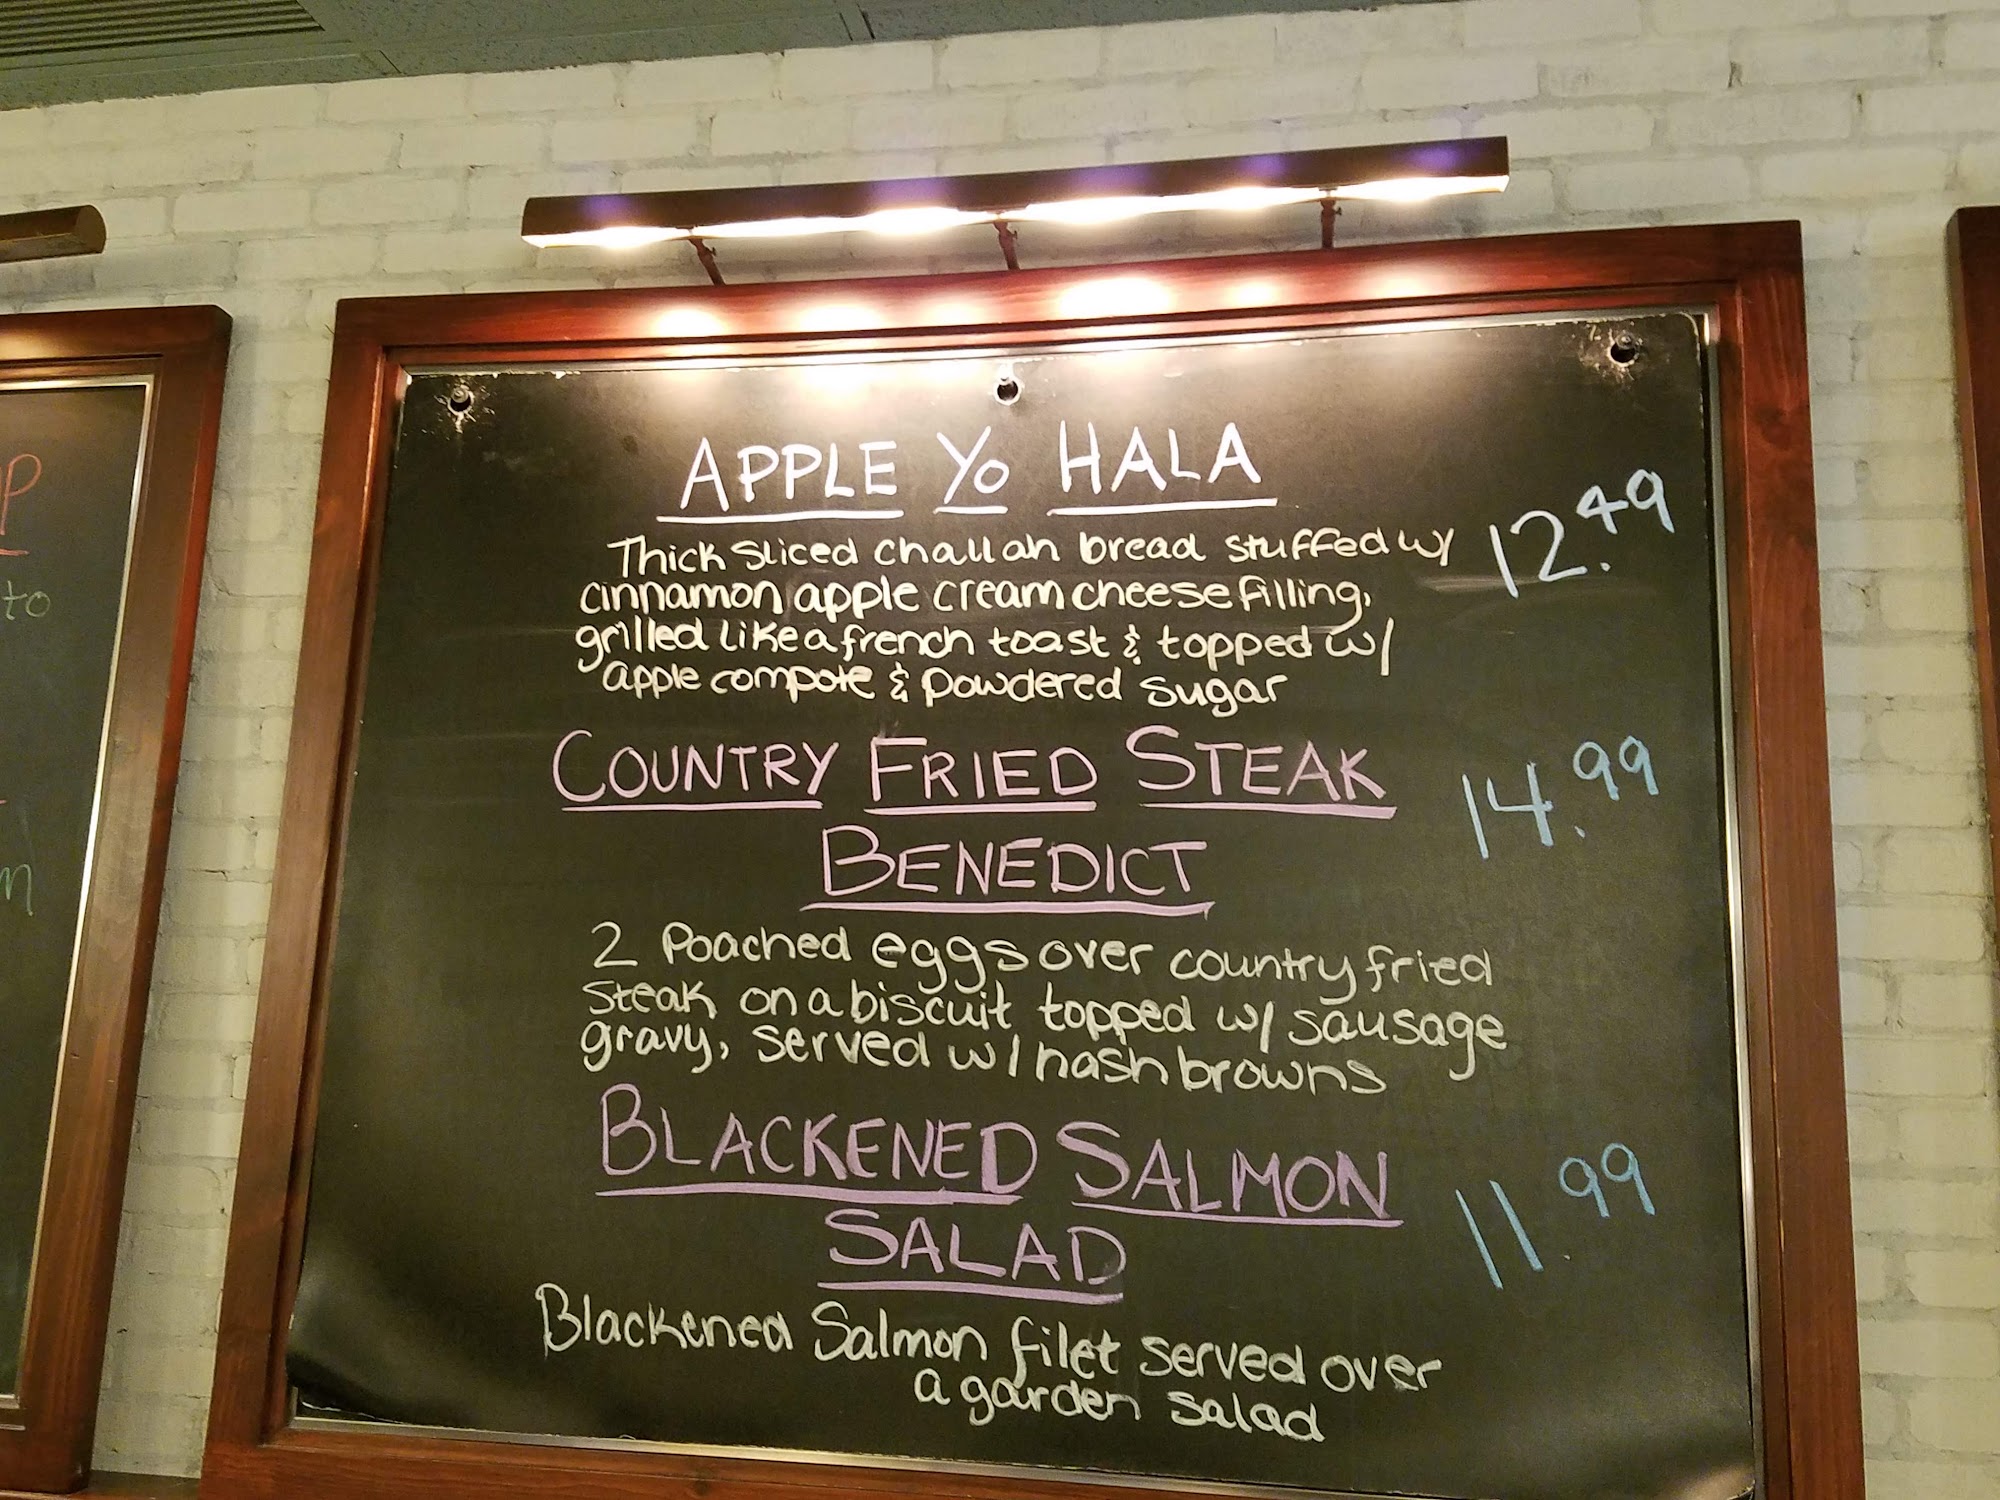 APPLE YO HALA
12.49
Thick sliced challah bread stuffed w/
cinnamon apple cream cheese filling,
grilled like a french toast & topped w/
apple compote & powdered sugar
COUNTRY FRIED STEAK
14.99
BENEDICT
2 Poached eggs over country fried
steak on a biscuit topped w/ sausage
gravy, served w/ hash browns
BLACKENED SALMON
11.99
SALAD
Blackened Salmon filet served over
a garden salad
to